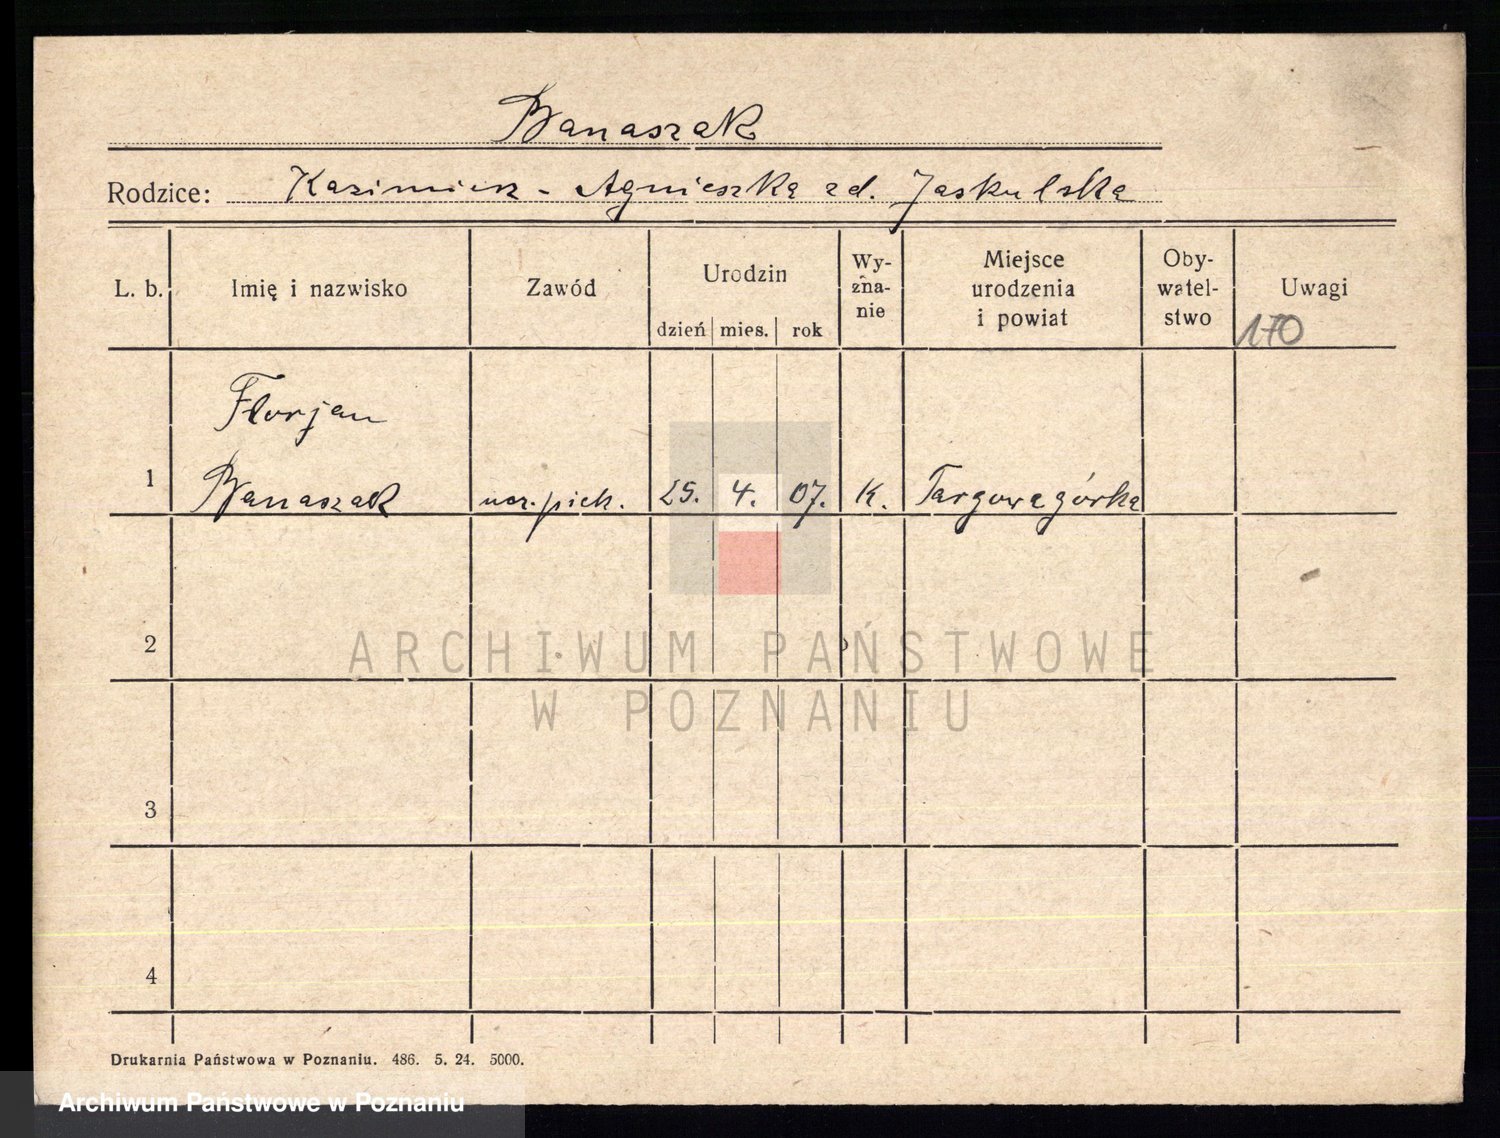 Banaszak
Rodzice: Kazimierz - Agnieszka zd. Jaskulska
L. b.
Imię i nazwisko
Zawód
Urodzin
dzień mies. rok
Wy-
zna-
nie
Miejsce
urodzenia
i powiat
Oby-
watel-
stwo
Uwagi
170
Florjan
1 Banaszak ucz. piek. 25. 4. 07. K. Targowagórka
2
3
4
ARCHIWUM PAŃSTWOWE
W POZNANIU
Drukarnia Państwowa w Poznaniu. 486. 5. 24. 5000.
Archiwum Państwowe w Poznaniu